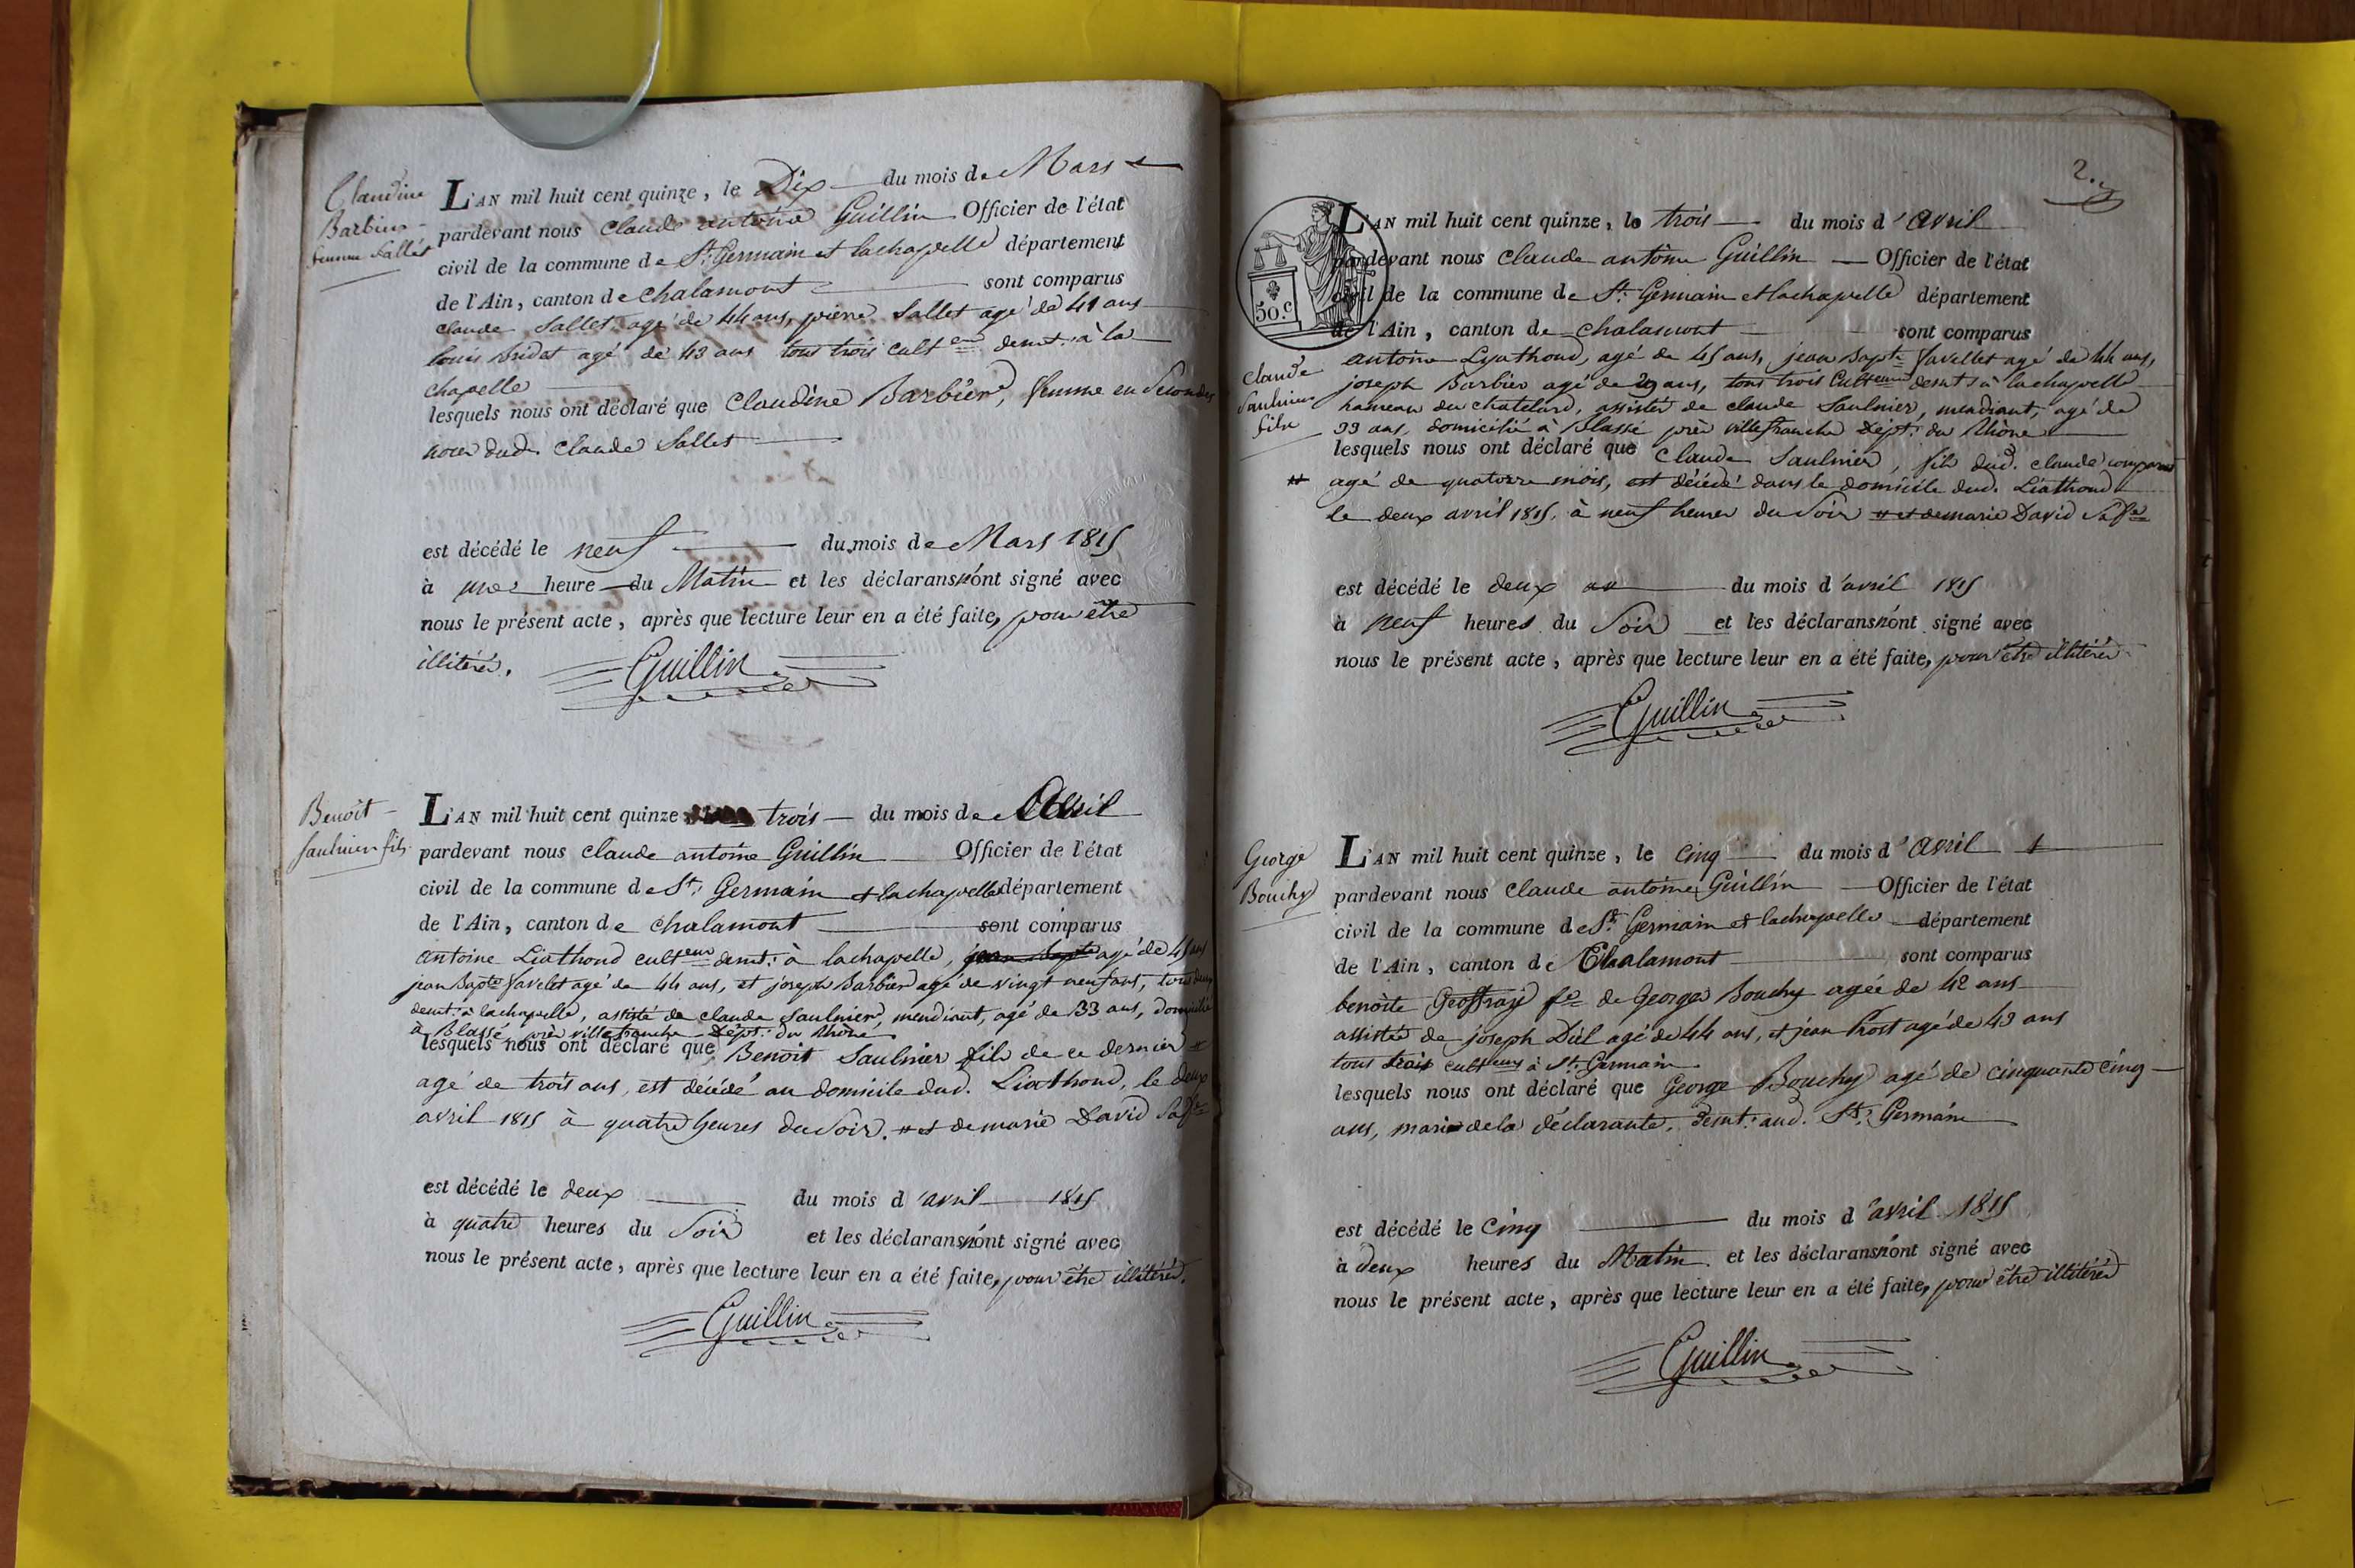 Claudine
Barbier
femme Sallet
L'AN mil huit cent quinze, le Dix du mois de Mars
pardevant nous Claude antoine Guillin Officier de l'état
civil de la commune de St. Germain et lachapelle département
de l'Ain, canton de Chalamont sont comparus
claude Sallet agé de 44 ans, pierre Sallet agé de 41 ans
louis bridet agé de 43 ans tous trois culteurs demt. à la
chapelle
lesquels nous ont déclaré que Claudine Barbier, femme en Secondes
noces dud. Claude Sallet
est décédé le neuf du mois de Mars 1815
à une heure du Matin et les déclarans n'ont signé avec
nous le présent acte, après que lecture leur en a été faite, pour être
illitérés.
Guillin
Benoît
Saulnier fils
L'AN mil huit cent quinze trois du mois de Avril
pardevant nous Claude antoine Guillin Officier de l'état
civil de la commune de St. Germain et lachapelle département
de l'Ain, canton de Chalamont sont comparus
antoine Liathoud culteur demt. à lachapelle, jean Bapte agé de 45 ans
jean Bapte favelet agé de 44 ans, et joseph Barbier agé de vingt neuf ans, tous deux
demt. à lachapelle, assisté de claude Saulnier, mendiant, agé de 33 ans, domicilié
à Blassé près villefranche Dépt. du Rhône
lesquels nous ont déclaré que Benoit Saulnier fils de ce dernier #
agé de trois ans, est décédé au domicile dud. Liathoud, le deux
avril 1815 à quatre heures du Soir. # et de marie David Sa fe
est décédé le deux du mois d'avril 1815
à quatre heures du Soir et les déclarans n'ont signé avec
nous le présent acte, après que lecture leur en a été faite, pour être illitérés.
Guillin
2.
50.c
L'AN mil huit cent quinze, le trois du mois d'avril
pardevant nous Claude antoine Guillin Officier de l'état
civil de la commune de St. Germain et lachapelle département
de l'Ain, canton de Chalamont sont comparus
Claude
Saulnier
fils
antoine Lyathoud, agé de 45 ans, jean Bapte favellet agé de 44 ans,
joseph Barbier agé de 29 ans, tous trois Culteurs demt. à lachapelle
hameau du chatelard, assistés de claude Saulnier, mendiant, agé de
33 ans, domicilié à Blassé près villefranche Dépt. du Rhône
lesquels nous ont déclaré que Claude Saulnier, fils dud. claude comparus
# agé de quatorze mois, est décédé dans le domicile dud. Liathoud
le deux avril 1815, à neuf heures du Soir # et de marie David Sa fe
est décédé le deux du mois d'avril 1815
à neuf heures du Soir et les déclarans n'ont signé avec
nous le présent acte, après que lecture leur en a été faite, pour être illitérés
Guillin
George
Bouchy
L'AN mil huit cent quinze, le cinq du mois d'avril
pardevant nous Claude antoine Guillin Officier de l'état
civil de la commune de St. Germain et lachapelle département
de l'Ain, canton de Chalamont sont comparus
benoite Geoffray fe de George Bouchy agée de 42 ans
assistée de joseph Diel agé de 44 ans, et jean Prost agé de 43 ans
tous trois culteurs à St. Germain
lesquels nous ont déclaré que George Bouchy agé de cinquante cinq
ans, mari de la déclarante, demt. aud. St. Germain
est décédé le cinq du mois d'avril 1815
à deux heures du Matin et les déclarans n'ont signé avec
nous le présent acte, après que lecture leur en a été faite, pour être illitérés
Guillin